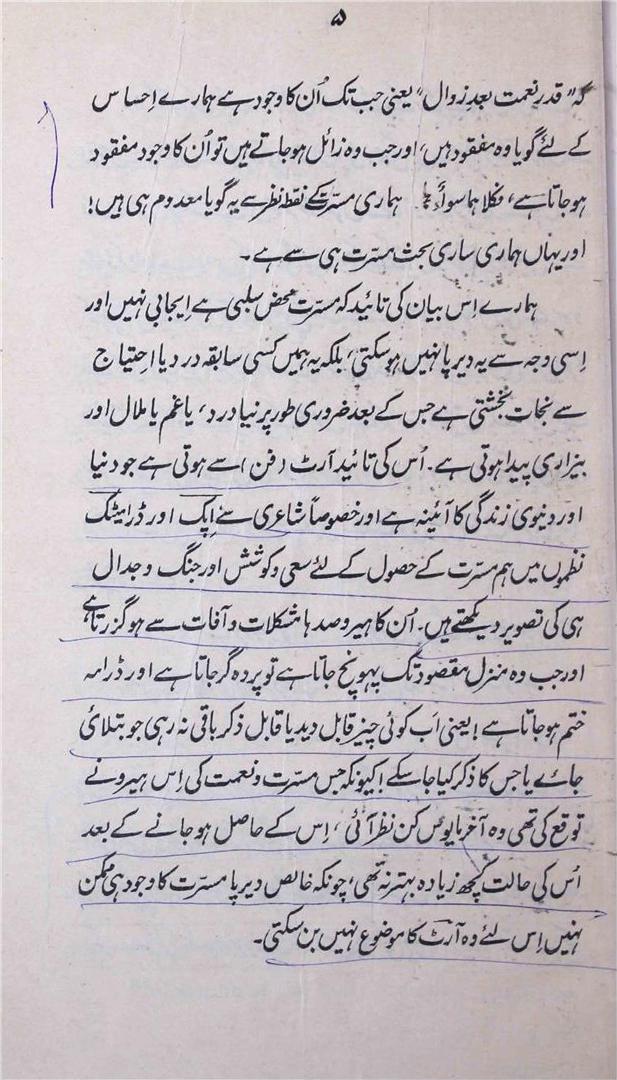 ۵
کہ "قدرِ نعمت بعدِ زوال" یعنی جب تک اُن کا وجود ہے ہمارے اِحساس
کے لئے گویا وہ مفقود ہیں، اور جب وہ زائل ہو جاتے ہیں تو اُن کا وجود مفقود
ہو جاتا ہے، فکلا ہما سواءٌ ہماری مسرّت کے نقطہ نظر سے یہ گویا معدوم ہی ہیں!
اور یہاں ہماری ساری بحث مسرّت ہی سے ہے۔
ہمارے اِس بیان کی تائید کہ مسرّت محض سلبی ہے اِیجابی نہیں اور
اِسی وجہ سے یہ دیرپا نہیں ہو سکتی، بلکہ یہ ہمیں کسی سابقہ درد یا اِحتیاج
سے نجات بخشتی ہے جس کے بعد ضروری طور پر نیا درد، یا غم یا ملال اور
بیزاری پیدا ہوتی ہے۔ اُس کی تائید آرٹ (فن) سے ہوتی ہے جو دنیا
اور دنیوی زندگی کا آئینہ ہے اور خصوصاً شاعری سے اِپک اور ڈرامیٹک
نظموں میں ہم مسرّت کے حصول کے لئے سعی و کوشش اور جنگ و جدال
ہی کی تصویر دیکھتے ہیں۔ اُن کا ہیرو صدہا مشکلات و آفات سے ہو گزرتا ہے
اور جب وہ منزل مقصود تک پہونچ جاتا ہے تو پردہ گر جاتا ہے اور ڈرامہ
ختم ہو جاتا ہے! یعنی اَب کوئی چیز قابل دید یا قابل ذکر باقی نہ رہی جو بتلائی
جائے یا جس کا ذکر کیا جا سکے! کیونکہ جس مسرّت و نعمت کی اِس ہیرو نے
توقع کی تھی وہ آخر مایوس کن نظر آئی، اِس کے حاصل ہو جانے کے بعد
اُس کی حالت کچھ زیادہ بہتر نہ تھی، چونکہ خالص دیرپا مسرّت کا وجود ہی ممکن
نہیں اِس لئے وہ آرٹ کا موضوع نہیں بن سکتی۔